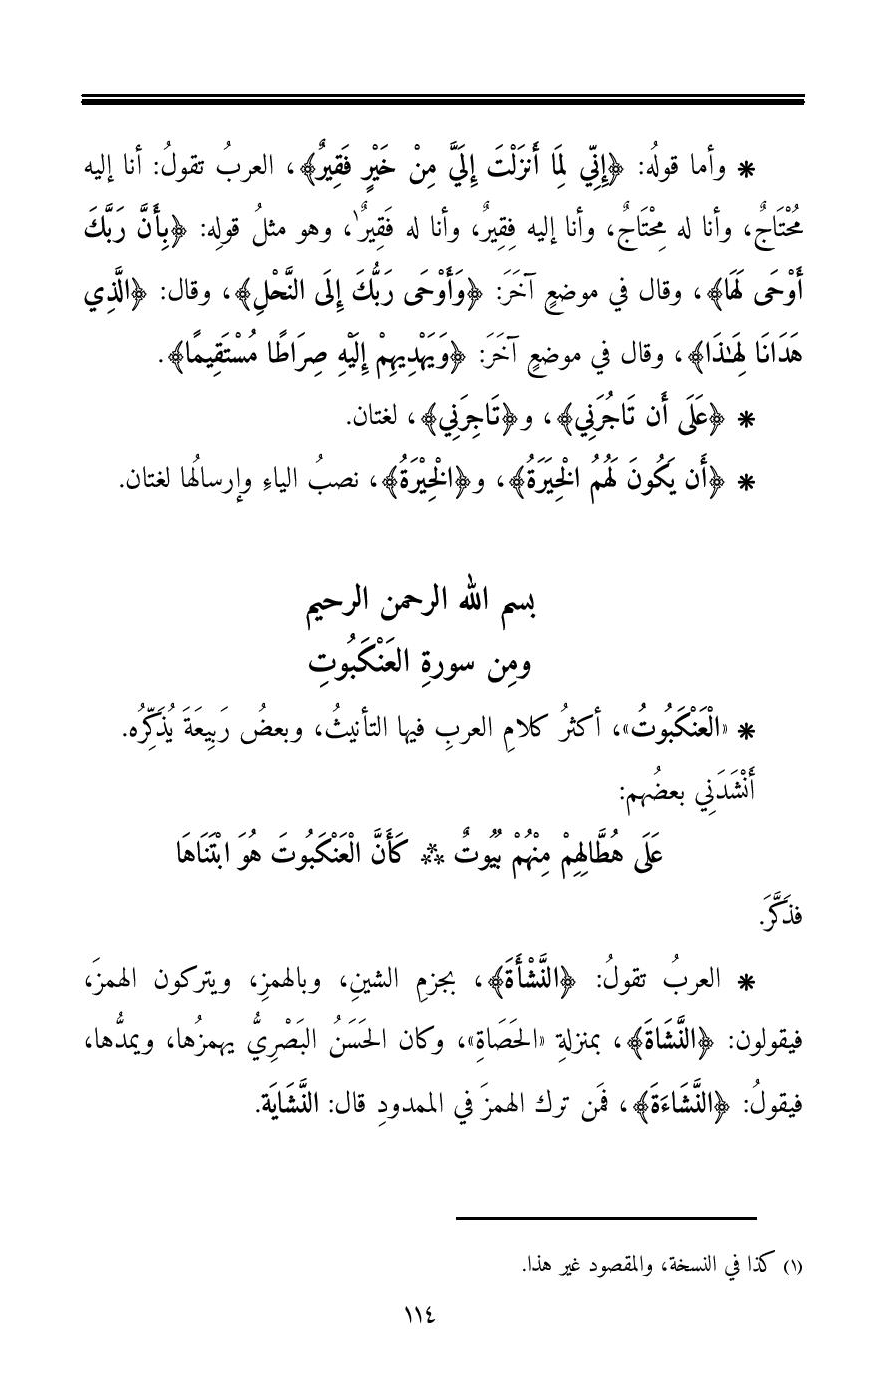 * وأما قولُه: ﴿إِنِّي لِمَا أَنزَلْتَ إِلَيَّ مِنْ خَيْرٍ فَقِيرٌ﴾، العربُ تقولُ: أنا إليه
مُحْتَاجٌ، وأنا له مِحْتَاجٌ، وأنا إليه فِقِيرٌ، وأنا له فَقِيرٌ(١)، وهو مثلُ قولِه: ﴿بِأَنَّ رَبَّكَ
أَوْحَى لَهَا﴾، وقال في موضعٍ آخَرَ: ﴿وَأَوْحَى رَبُّكَ إِلَى النَّحْلِ﴾، وقال: ﴿الَّذِي
هَدَانَا لِهَـٰذَا﴾، وقال في موضعٍ آخَرَ: ﴿وَيَهْدِيهِمْ إِلَيْهِ صِرَاطًا مُسْتَقِيمًا﴾.
* ﴿عَلَى أَن تَاجُرَنِي﴾، و﴿تَاجِرَنِي﴾، لغتان.
* ﴿أَن يَكُونَ لَهُمُ الْخِيَرَةُ﴾، و﴿الْخِيْرَةُ﴾، نصبُ الياءِ وإرسالُها لغتان.
بسم الله الرحمن الرحيم
ومِن سورةِ العَنْكَبُوتِ
* «الْعَنْكَبُوتُ»، أكثرُ كلامِ العربِ فيها التأنيثُ، وبعضُ رَبِيعَةَ يُذَكِّرُه.
أَنْشَدَنِي بعضُهم:
عَلَى هُطَّالِهِمْ مِنْهُمْ بُيُوتٌ ** كَأَنَّ الْعَنْكَبُوتَ هُوَ ابْتَنَاهَا
فذَكَّرَ.
* العربُ تقولُ: ﴿النَّشْأَةَ﴾، بجزمِ الشينِ، وبالهمزِ، ويتركون الهمزَ،
فيقولون: ﴿النَّشَاةَ﴾، بمنزلةِ «الحَصَاةِ»، وكان الحَسَنُ البَصْرِيُّ يهمزُها، ويمدُّها،
فيقولُ: ﴿النَّشَاءَةَ﴾، فمَن ترك الهمزَ في الممدودِ قال: النَّشَايَة.
(١) كذا في النسخة، والمقصود غير هذا.
١١٤